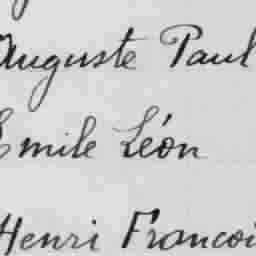 Auguste Paul
Emile Léon
Henri Francoi